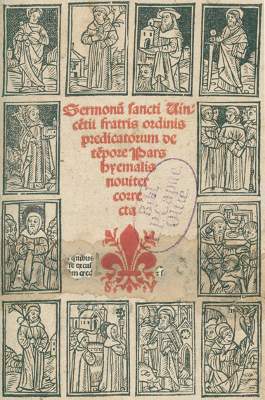 Sermonū sancti Uin-
cētii fratris ordinis
predicatorum de
tēpore Pars
hyemalis
nouiter
corre
cta